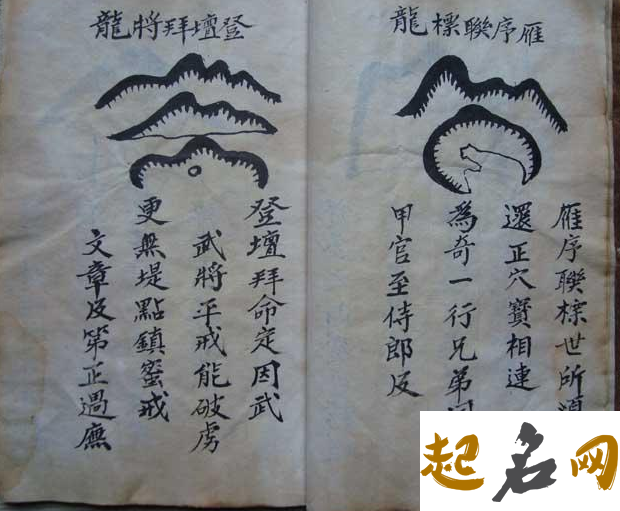 雁序聯標龍
雁序聯標世所
還正穴寶相連
為奇一行兄弟
甲官至侍郎反
登壇拜將龍
登壇拜命定因武
武將平戒能破虏
更無堤點鎮蜜戒
文章及第正遇廡
起名网